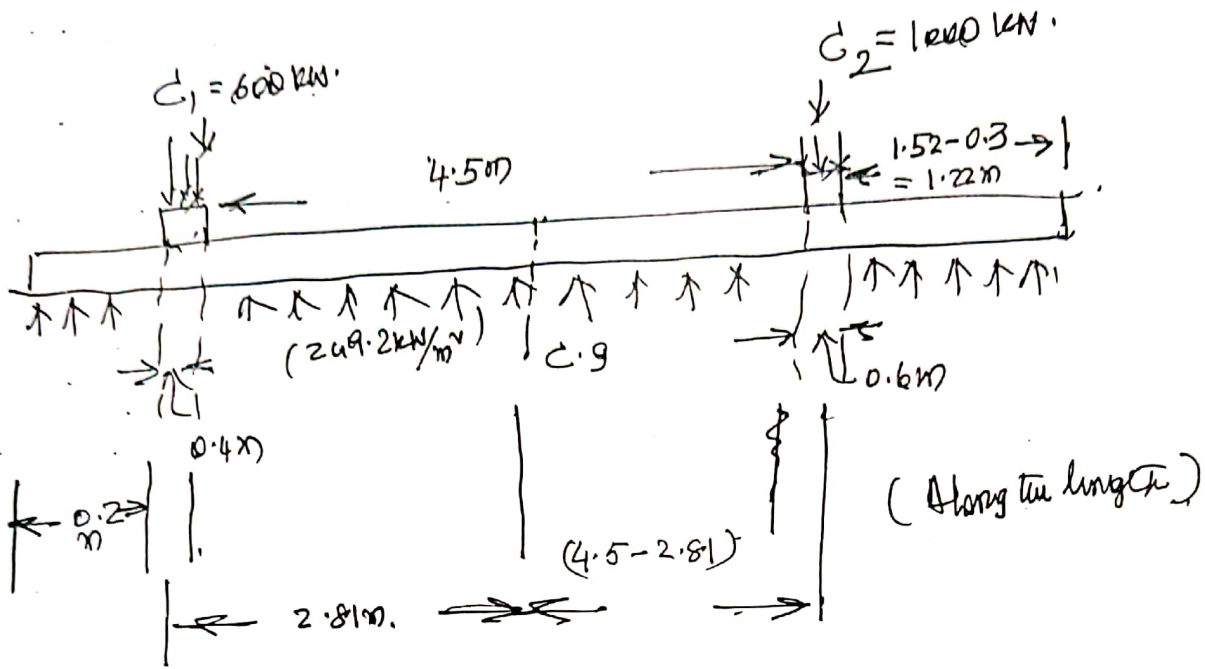 C₂ = 1000 kN.
C₁ = 600 kN.
4.5m
1.52-0.3
= 1.22m
(249.2kN/m²)
C.g
0.6m
0.4m
0.2
m
(Along the length)
(4.5-2.81)
2.81m.